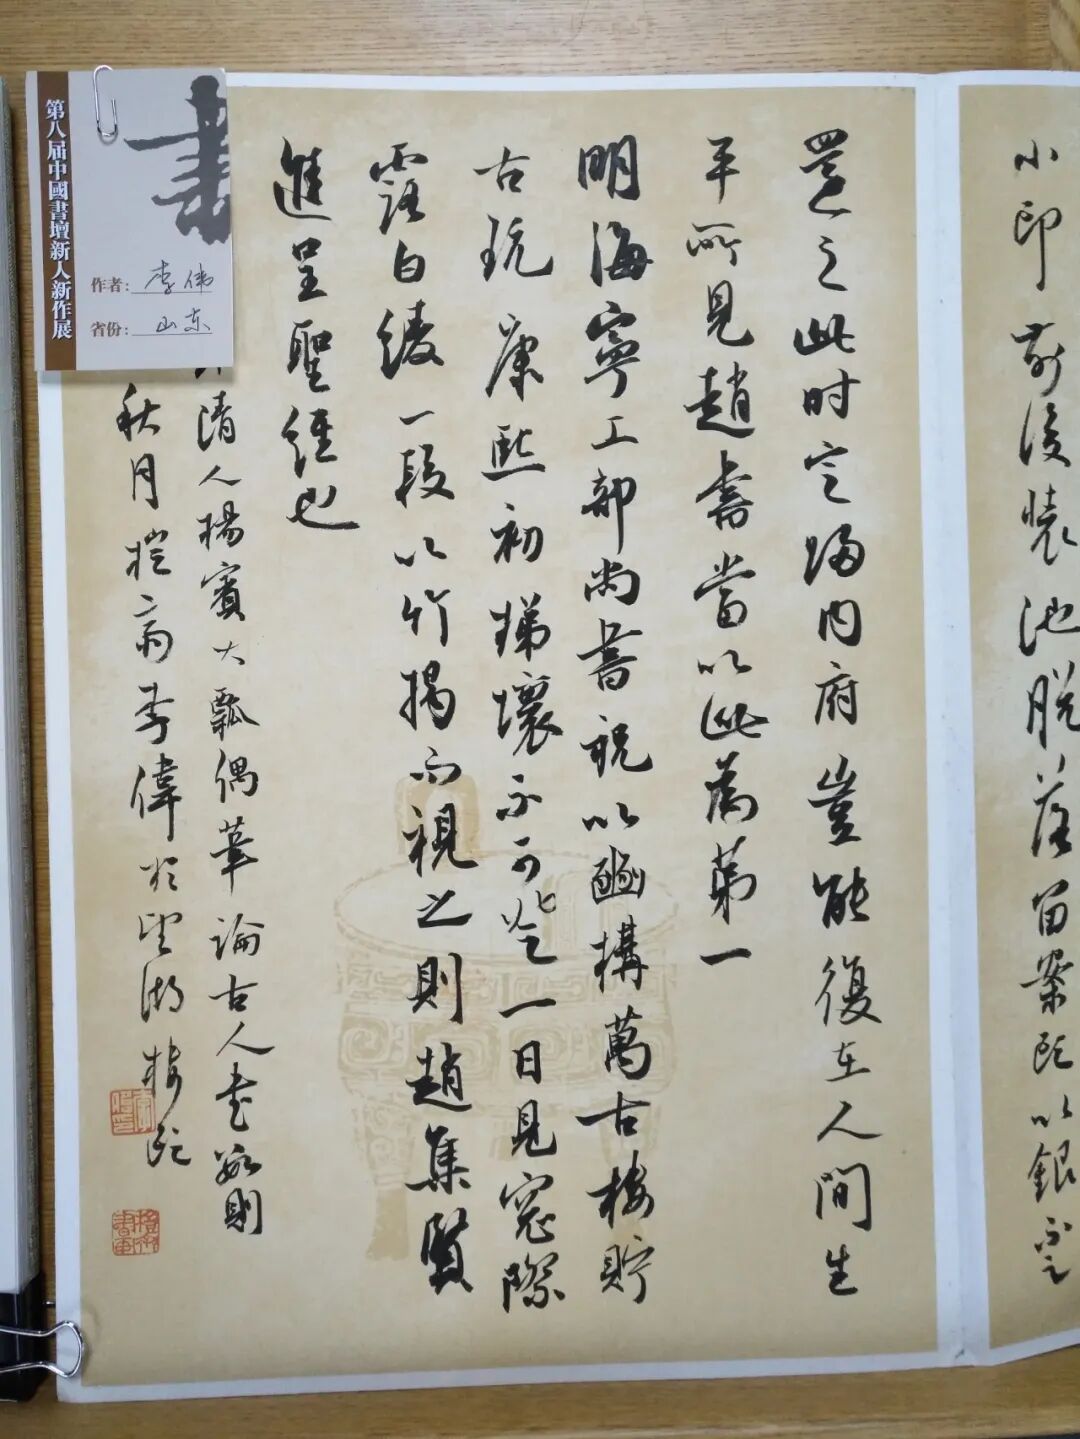 小印前後裝池脫落留案既以銀定
置之此时定歸内府豈能復在人間生
平所見趙書當以此為第一
明海寧工部尚書祝以豳構萬古樓貯
古玩康熙初梯壞不可登一日見窓際
露白綾一段以竹揭而視之則趙集賢
進呈聖經也
清人楊賓大瓢偶筆論古人書數則
秋月 李偉於望湖樓記
第八届中國書壇新人新作展
書
作者:李偉
省份:山东